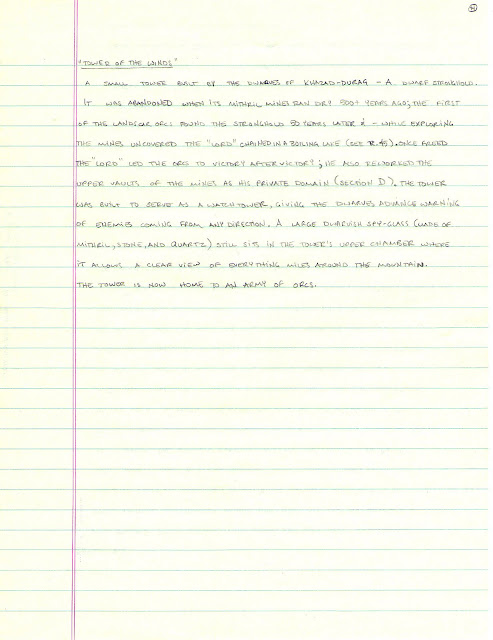 "TOWER OF THE WINDS"
A SMALL TOWER BUILT BY THE DWARVES OF KHAZAD-DURAG - A DWARF STRONGHOLD.
IT WAS ABANDONED WHEN ITS MITHRIL MINES RAN DRY 500+ YEARS AGO; THE FIRST
OF THE ORCS FOUND THE STRONGHOLD 50 YEARS LATER & - WHILE EXPLORING
THE MINES UNCOVERED THE "LORD" CHAINED IN A BOILING LAKE (SEE ). ONCE FREED
THE "LORD" LED THE ORCS TO VICTORY AFTER VICTORY; HE ALSO REWORKED THE
UPPER VAULTS OF THE MINES AS HIS PRIVATE DOMAIN (SECTION D). THE TOWER
WAS BUILT TO SERVE AS A WATCH TOWER, GIVING THE DWARVES ADVANCE WARNING
OF ENEMIES COMING FROM ANY DIRECTION. A LARGE DWARVISH SPY-GLASS (MADE OF
MITHRIL, STONE, AND QUARTZ) STILL SITS IN THE TOWER'S UPPER CHAMBER WHERE
IT ALLOWS A CLEAR VIEW OF EVERYTHING MILES AROUND THE MOUNTAIN.
THE TOWER IS NOW HOME TO AN ARMY OF ORCS.